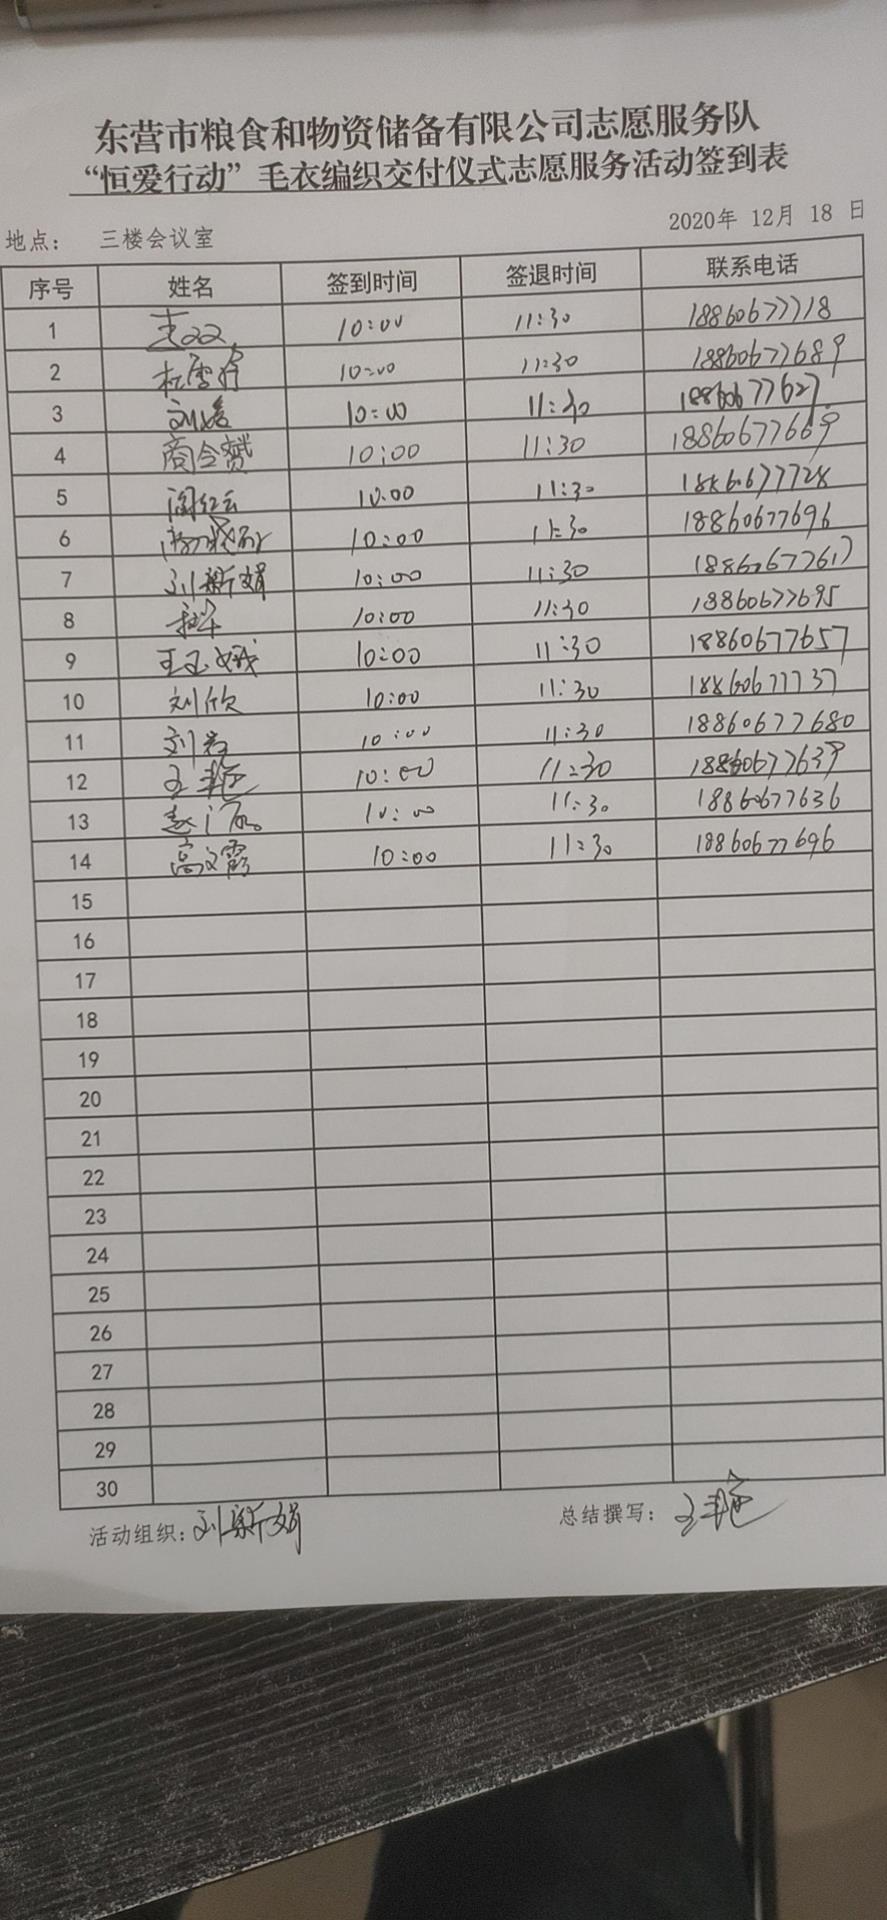 东营市粮食和物资储备有限公司志愿服务队
“恒爱行动”毛衣编织交付仪式志愿服务活动签到表
地点： 三楼会议室 2020年 12月 18 日
序号 姓名 签到时间 签退时间 联系电话
1 10:00 11:30 18860677718
2 10:00 11:30 18860677689
3 10:00 11:30 18860677627
4 商令赟 10:00 11:30 18860677669
5 闫红云 10:00 11:30 18860677728
6 10:00 11:30 18860677696
7 刘新娟 10:00 11:30 18860677617
8 10:00 11:30 18860677695
9 王玉娥 10:00 11:30 18860677657
10 刘欣 10:00 11:30 18860677737
11 10:00 11:30 18860677680
12 王艳 10:00 11:30 18860677639
13 10:00 11:30 18860677636
14 高文霞 10:00 11:30 18860677696
15
16
17
18
19
20
21
22
23
24
25
26
27
28
29
30
活动组织：刘新娟 总结撰写：王艳